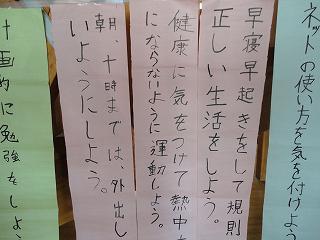 ネットの使い方を気を付けよう
早寝早起きをして規則
正しい生活をしよう。
健康に気をつけて熱中
にならないように運動しよう。
朝、十時までは、外出し
ないようにしよう。
計画的に勉強をしよう